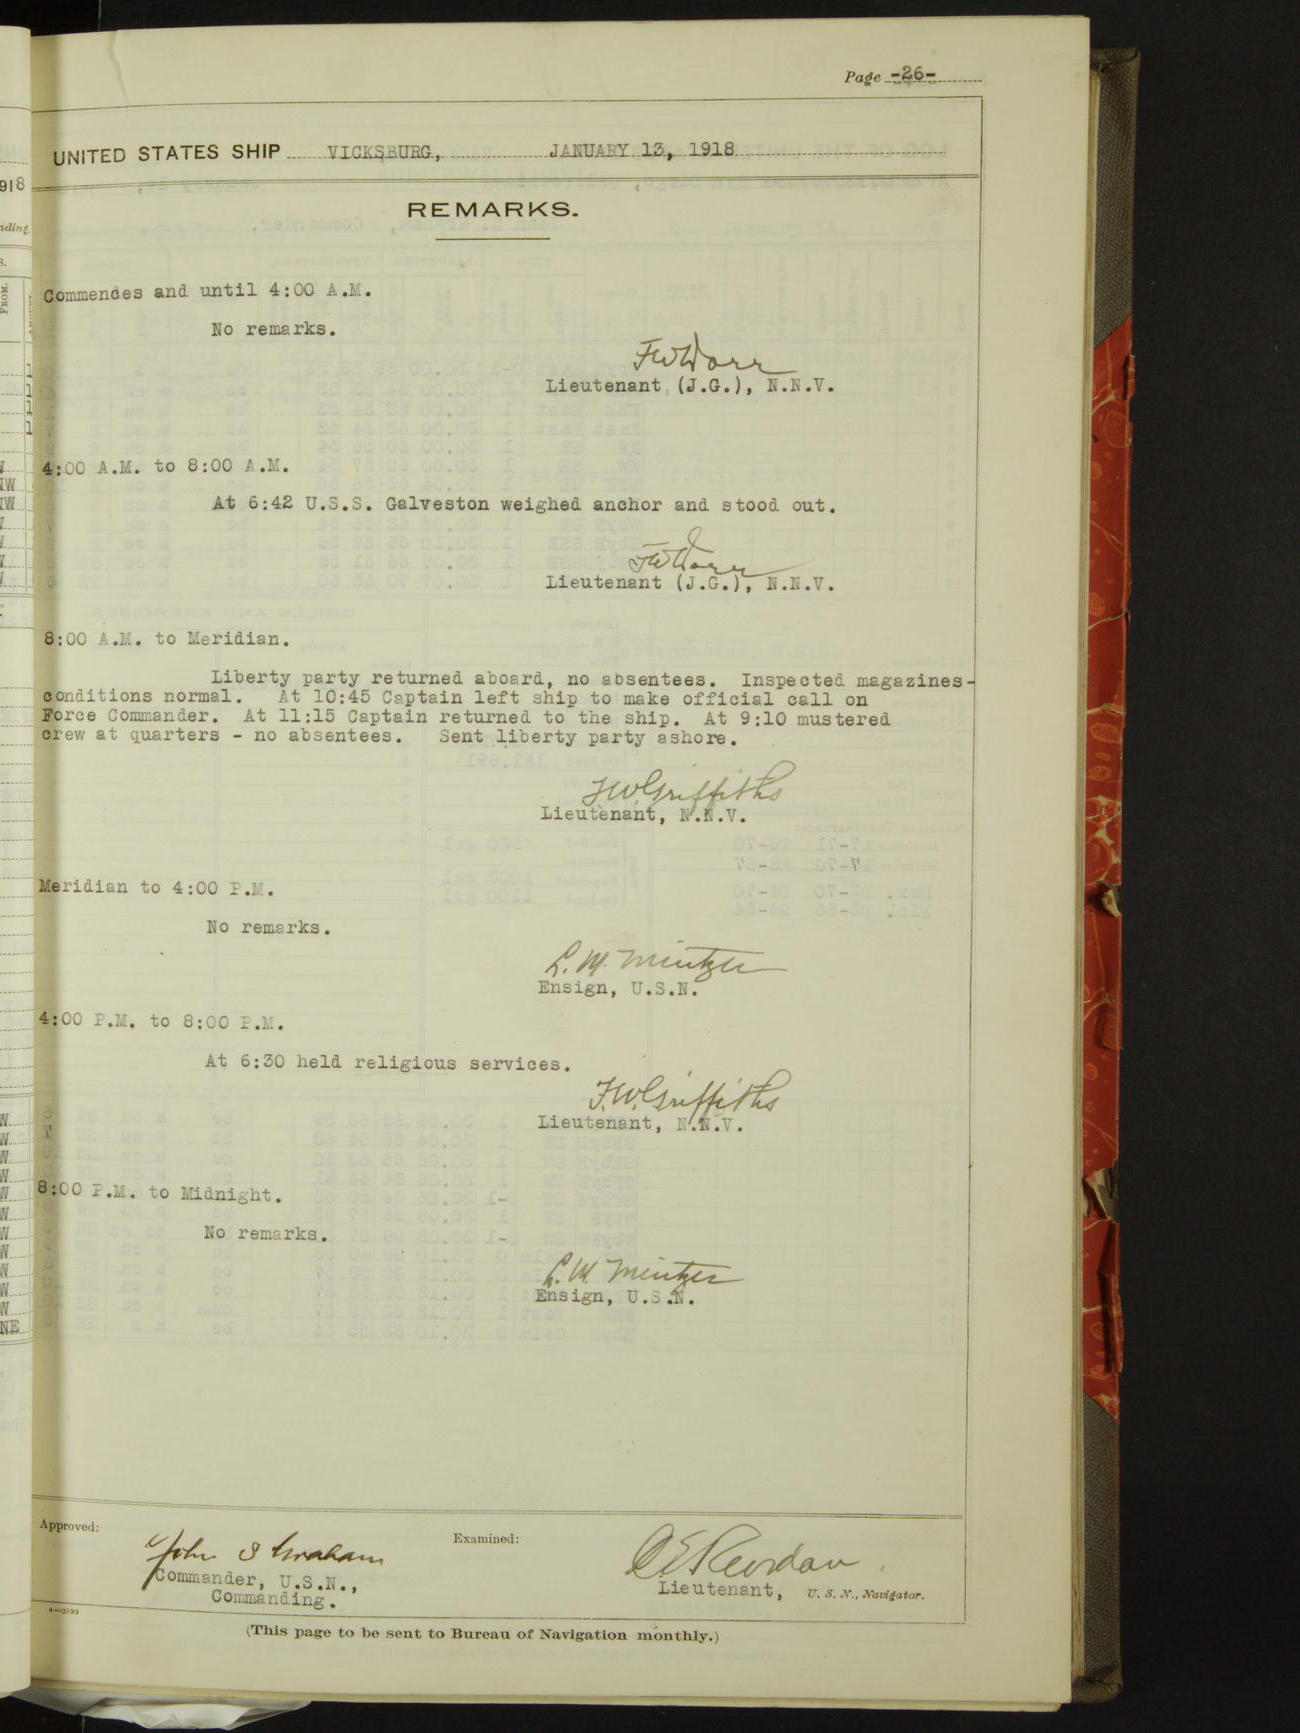 Page -26-
UNITED STATES SHIP VICKSBURG, JANUARY 13, 1918
REMARKS.
Commences and until 4:00 A.M.
No remarks.
F W Dorr
Lieutenant (J.G.), N.N.V.
4:00 A.M. to 8:00 A.M.
At 6:42 U.S.S. Galveston weighed anchor and stood out.
F W Dorr
Lieutenant (J.G.), N.N.V.
8:00 A.M. to Meridian.
Liberty party returned aboard, no absentees. Inspected magazines-
conditions normal. At 10:45 Captain left ship to make official call on
Force Commander. At 11:15 Captain returned to the ship. At 9:10 mustered
crew at quarters - no absentees. Sent liberty party ashore.
F.W. Griffiths
Lieutenant, N.N.V.
Meridian to 4:00 P.M.
No remarks.
L. M. Mintzer
Ensign, U.S.N.
4:00 P.M. to 8:00 P.M.
At 6:30 held religious services.
F.W. Griffiths
Lieutenant, N.N.V.
8:00 P.M. to Midnight.
No remarks.
L. M Mintzer
Ensign, U.S.N.
Approved:
John S Graham
Commander, U.S.N.,
Commanding.
Examined:
C E Reordan
Lieutenant, U. S. N., Navigator.
(This page to be sent to Bureau of Navigation monthly.)